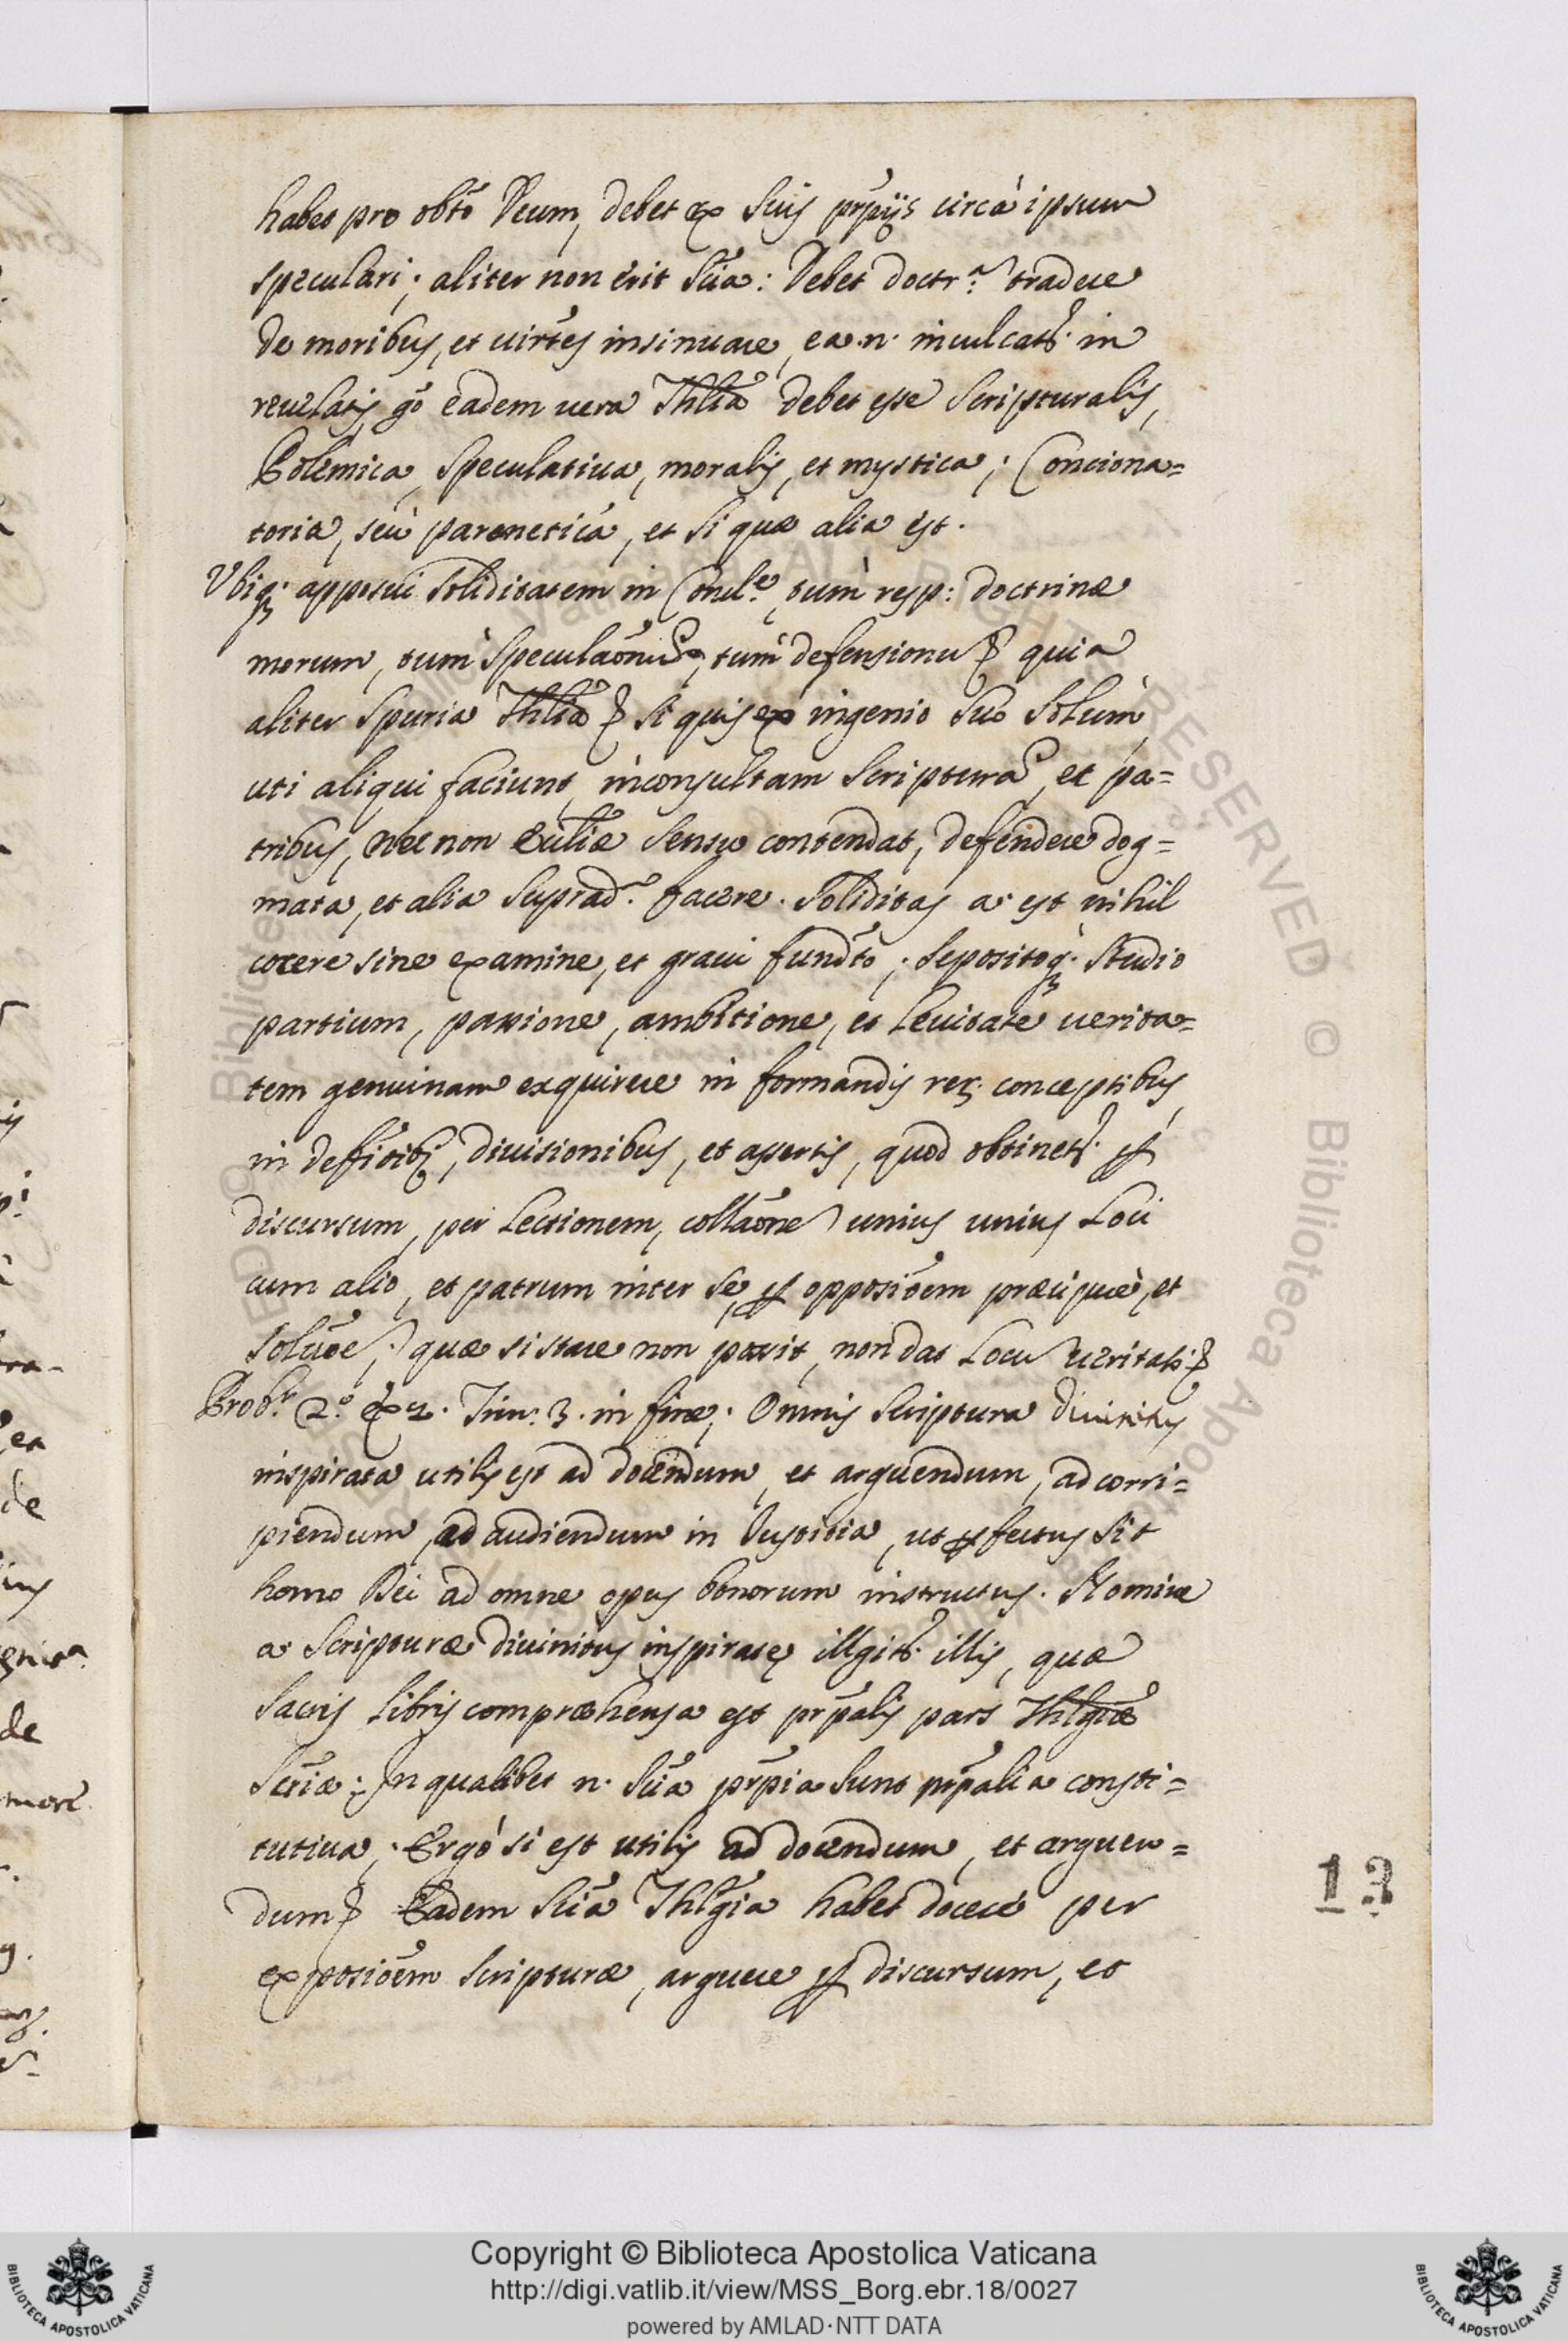 habet pro obto Deum, debet ex suis prpijs circa ipsum
speculari; aliter non erit scia: Debet doctr.ª tradere
de moribus, et virtes insinuare, ea .n. inculcatr. in
revelatis, go eadem vera Thlia debet esse Scripturalis,
Polemica, speculativa, moralis, et mystica; Conciona=
toria, seù parenetica, et si quæ alia est.
Ubiq; apposui soliditatem in Concl.e, tum resp: doctrinæ
morum, tum speculaonu, tum defensionu quia
aliter spuria Thlia si quis ex ingenio suo solum,
uti aliqui faciunt, inconsultam scriptura, et pa=
tribus, nec non Ecclie sensu contendat, defendere dog=
mata, et alia suprad.ª facere. Soliditas a. est nihil
sine examine, et gravi fundto; sepositoq; studio
partium, passione, ambitione, et levitate verita=
tem genuinam exquirere in formandis rer. conceptibus,
in deffitib, divisionibus, et assertis, quod obtinetr. p
discursum, per lectionem, collaone unius unius loci
cum alio, et patrum inter se, p opposioem præcipuè, et
soluoe; quæ si stare non possit, non dat locu veritati.
Probr. 2.º ex 2. Tim: 3. in fine; Omnis scriptura divinitus
inspirata utilis est ad docendum, et arguendum, ad corri=
piendum, ad audiendum in Iustitia, ut pfectus sit
homo Dei ad omne opus bonorum instructus. Nomine
a. Scripturæ divinitus inspirate illgitr. illis, quæ
sacris libris compræhensa est prpalis pars Thlgiæ
Scriæ: In qualibet n. scia prpia sunt prpalia consti=
tutiva; Ergò si est utilis ad docendum, et arguen=
dum Eadem scia Thlgia habet docere per
exposioem scripturæ, arguere p discursum, et
13
Copyright © Biblioteca Apostolica Vaticana
http://digi.vatlib.it/view/MSS_Borg.ebr.18/0027
powered by AMLAD·NTT DATA